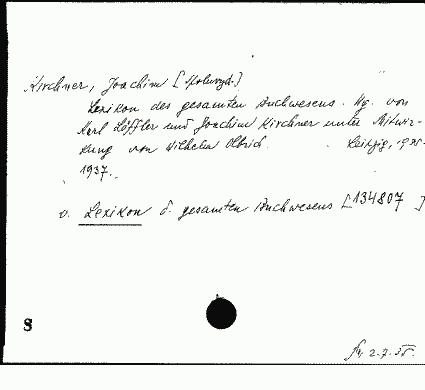 Kirchner, Joachim [spoluvyd.]
Lexikon des gesamten Buchwesens. Hg. von
Karl Löffler und Joachim Kirchner unter Mitwir-
kung von Wilhelm Olbrich. Leipzig, 1935-
1937.
v. Lexikon d. gesamten Buchwesens [134807]
S
2.7.35.